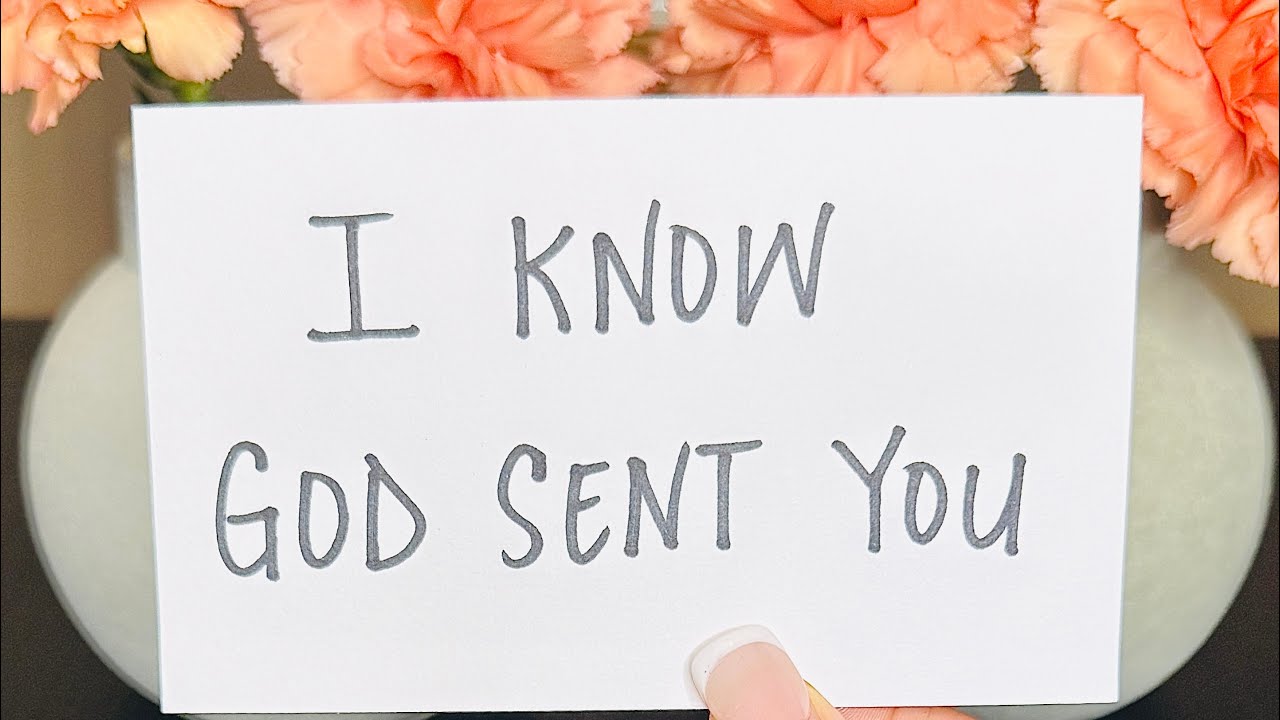 I KNOW
GOD SENT YOU